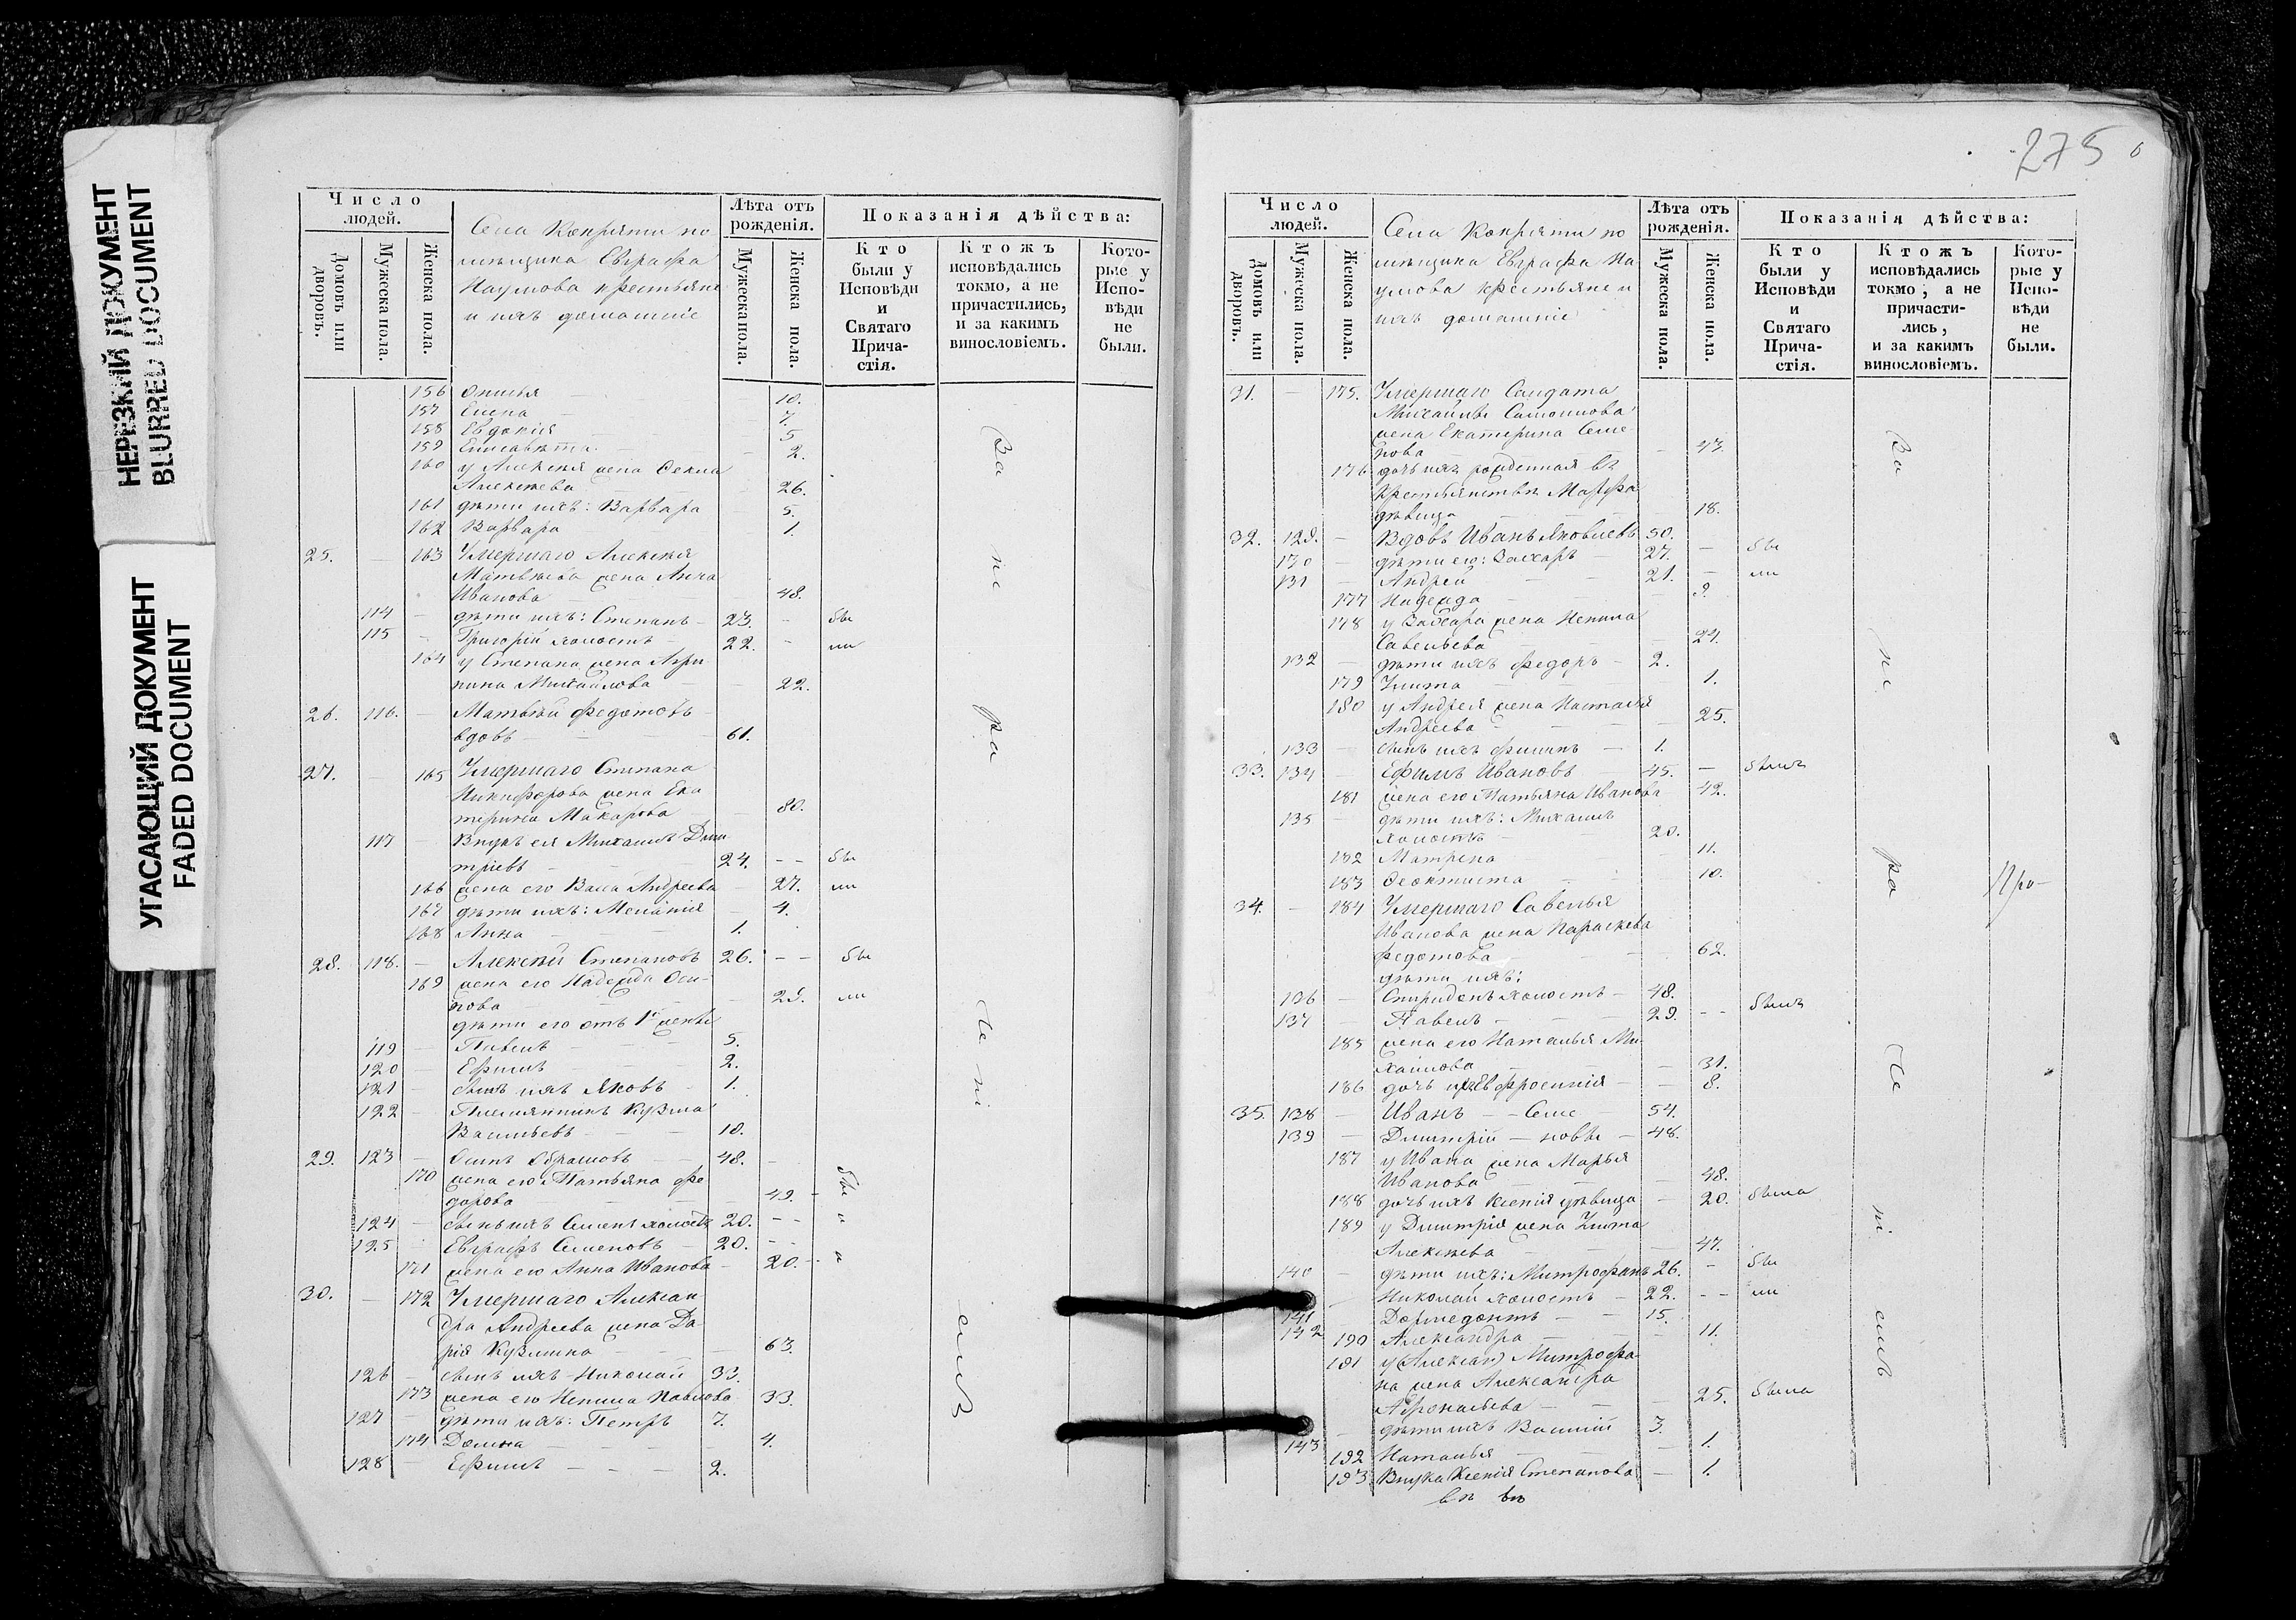 НЕРЕЗКИЙ ДОКУМЕНТ
BLURRED DOCUMENT
УГАСАЮЩИЙ ДОКУМЕНТ
FADED DOCUMENT
Число людей.
Домовъ или дворовъ.
Мужеска пола.
Женска пола.
Села Копряти по
мѣщика Евграфа
Наумова крестьяне
и ихъ домашніе
Лѣта отъ рожденія.
Мужеска пола.
Женска пола.
Показанія дѣйства:
Кто были у Исповѣди и Святаго Прича-стія.
Ктожъ исповѣдались токмо, а не причастились, и за какимъ винословіемъ.
Кото-рые у Испо-вѣди не были.
156 Ониья 10.
157 Елена 7.
158 Евдокія 5
159 Елисавета 2.
160 у Алексѣя жена Фекла
Алексѣева 26.
161 дѣти ихъ: Варвара 5.
162 Варвара 1.
25. — 163 Умершаго Алексѣя
Матвѣева жена Анна
Иванова 48.
114 — дѣти ихъ: Степанъ 23. — бы
115 — Григорій холостъ 22. — ли
164 у Степана жена Агри
пина Михайлова 22.
26. 116. — Матвѣй Федотовъ
вдовъ 61.
27. — 165 Умершаго Степана
Никифорова жена Ека
терина Макарова 80.
117 — Внукъ ея Михаилъ Дми
тріевъ 24. — — бы
166 жена его Васса Андреева 27. ли
167 дѣти ихъ: Меланія 4.
168 Анна 1.
28. 118. — Алексѣй Степановъ 26. — — бы
169 жена его Надежда Оси-
пова 25. ли
дѣти его отъ 1й жены
119 — Павелъ 5.
120 — Ефимъ 2.
121 — сынъ ихъ Яковъ 1.
122 — Племянникъ Кузма
Васильевъ 10.
29. 123 — Осипъ Абрамовъ 48. —
170 жена его Татьяна Фе
дорова 49. — бы
124 — сынъ ихъ Семенъ холостъ 20. — — л
125 Евграфъ Семеновъ 20. — —
171 жена его Анна Иванова 20. — и
30. — 172 Умершаго Алексан
дра Андреева жена Да-
рія Кузмина 63.
126 — сынъ ихъ Николай 33.
173 жена его Ненила Павлова 33.
127 — дѣти ихъ: Петръ 7.
174 Домна 4.
128 — Ефимъ 2.
За не ра че ні емъ
275
Число людей.
Домовъ или дворовъ.
Мужеска пола.
Женска пола.
Села Копряти по
мѣщика Евграфа На
умова крестьяне и
ихъ домашніе
Лѣта отъ рожденія.
Мужеска пола.
Женска пола.
Показанія дѣйства:
Кто были у Исповѣди и Святаго Прича-стія.
Ктожъ исповѣдались токмо, а не причасти-лись, и за какимъ винословіемъ.
Кото-рые у Испо-вѣди не были.
31. — 175. Умершаго Салдата
Михайлы Самоилова
жена Екатерина Семе
нова 43.
176 дочь ихъ рожденная въ
крестьянствѣ Марфа
дѣвица 18.
32. 129. — Вдовъ Иванъ Яковлевъ 50.
130 — дѣти его: Захаръ 27. — бы
131 — Андрей 21. — ли
177 Надежда 9.
178 у Захара жена Ненила
Савельева 24.
132 — дѣти ихъ Федоръ 2.
179 Улита 1.
180 у Андрея жена Настасья
Андреева 25.
133 — сынъ ихъ Филипъ 1.
33. 134 — Ефимъ Ивановъ 45. — былъ
181 жена его Татьяна Иванова 42.
135 — дѣти ихъ: Михаилъ
холостъ 20.
182 Матрена 11.
183 Феоктиста 10.
34. — 184 Умершаго Савелья
Иванова жена Параскева
Федотова 62.
дѣти ихъ:
136 — Спиридонъ холостъ 48.
137 — Павелъ 29. — — былъ
185 жена его Наталья Ми-
хайлова 31.
186 дочь ихъ Евфросинія 8.
35. 138 Иванъ — — Семе 54.
139 — Димитрій — новы 48.
187 у Ивана жена Марья
Иванова 48.
188 дочь ихъ Ксенія дѣвица 20. была
189 у Димитрія жена Улита
Алексѣева 47.
140 — дѣти ихъ: Митрофанъ 26. — бы
Николай холостъ 22. — — ли
141 Дормедонтъ 15.
142 190 Александра 11.
191 у (Алексан) Митрофа
на жена Александра
Афонасьева 25. была
— дѣти ихъ Василій 3.
143 192 Наталья 1.
193 Внука Ксенія Степанова 1.
За не ра че ні емъ
Про-